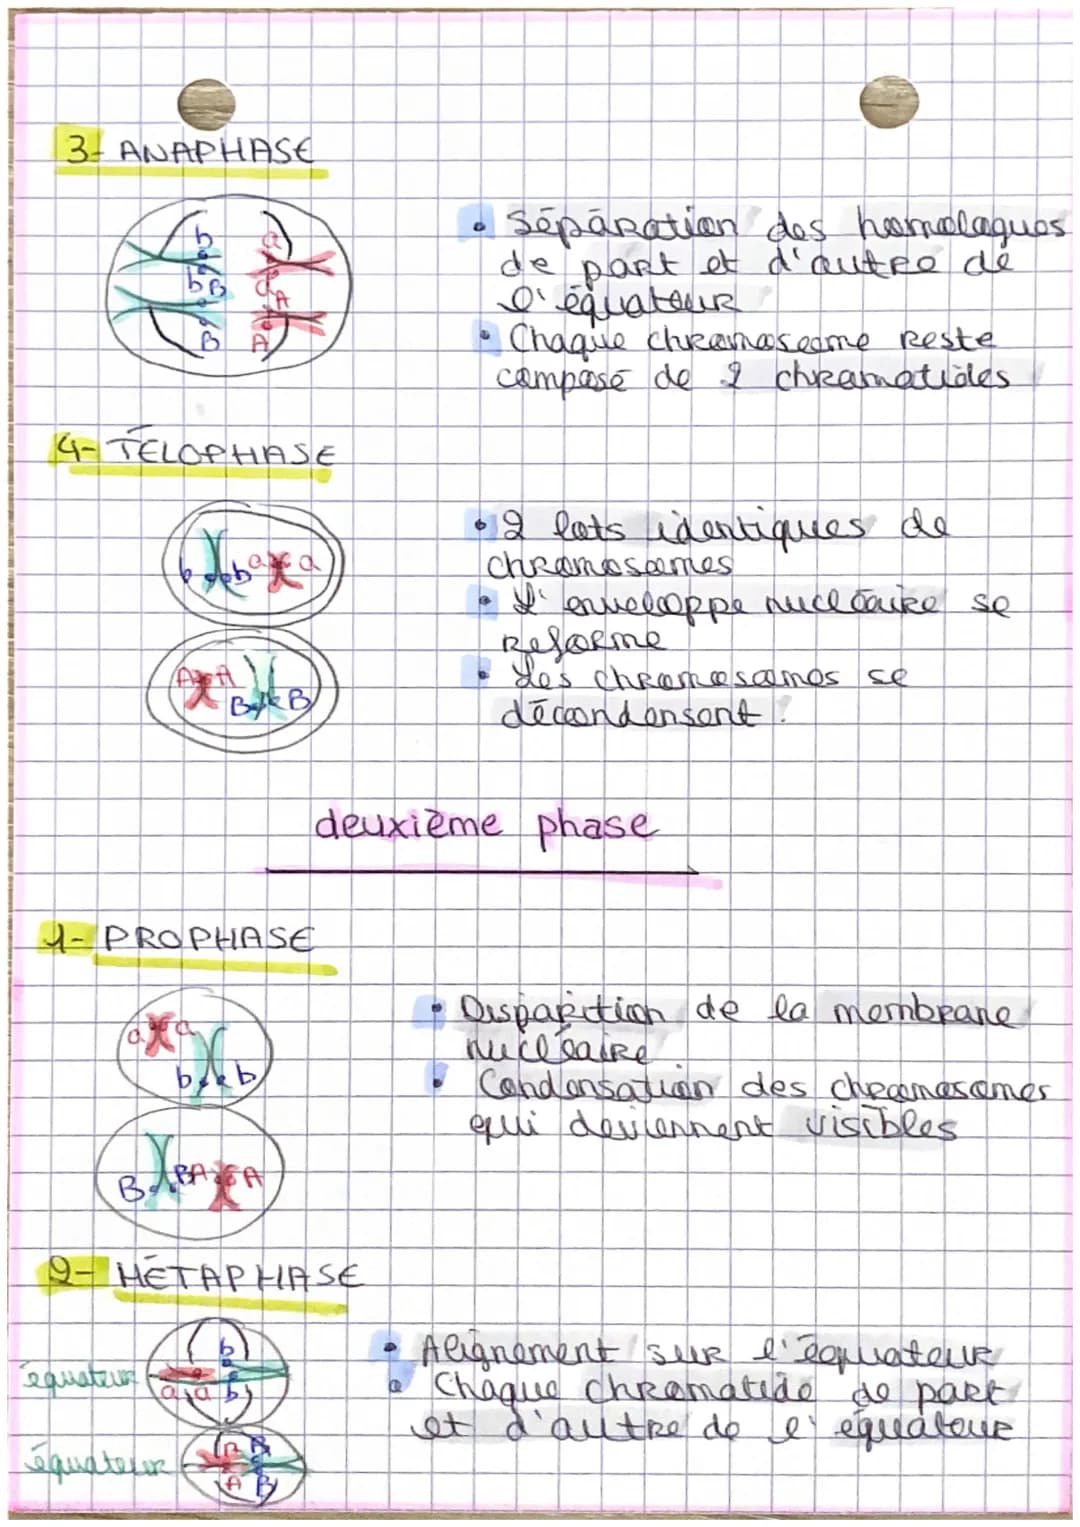 3- ANAPHASE
b a
b B a A
B A
• Séparation des homologues
de part et d'autre de
l'équateur
• Chaque chromosome reste
composé de 2 chromatides
4- TÉLOPHASE
b b a a
A A
B B
• 2 lots identiques de
chromosomes
• L'enveloppe nucléaire se
reforme
• Les chromosomes se
décondensent.
deuxième phase
1- PROPHASE
a a
b b
B B A A
• Disparition de la membrane
nucléaire
• Condensation des chromosomes
qui deviennent visibles
2- MÉTAPHASE
b
équateur
a a b
• Alignement sur l'équateur
• Chaque chromatide de part
et d'autre de l'équateur
A B
équateur
A B